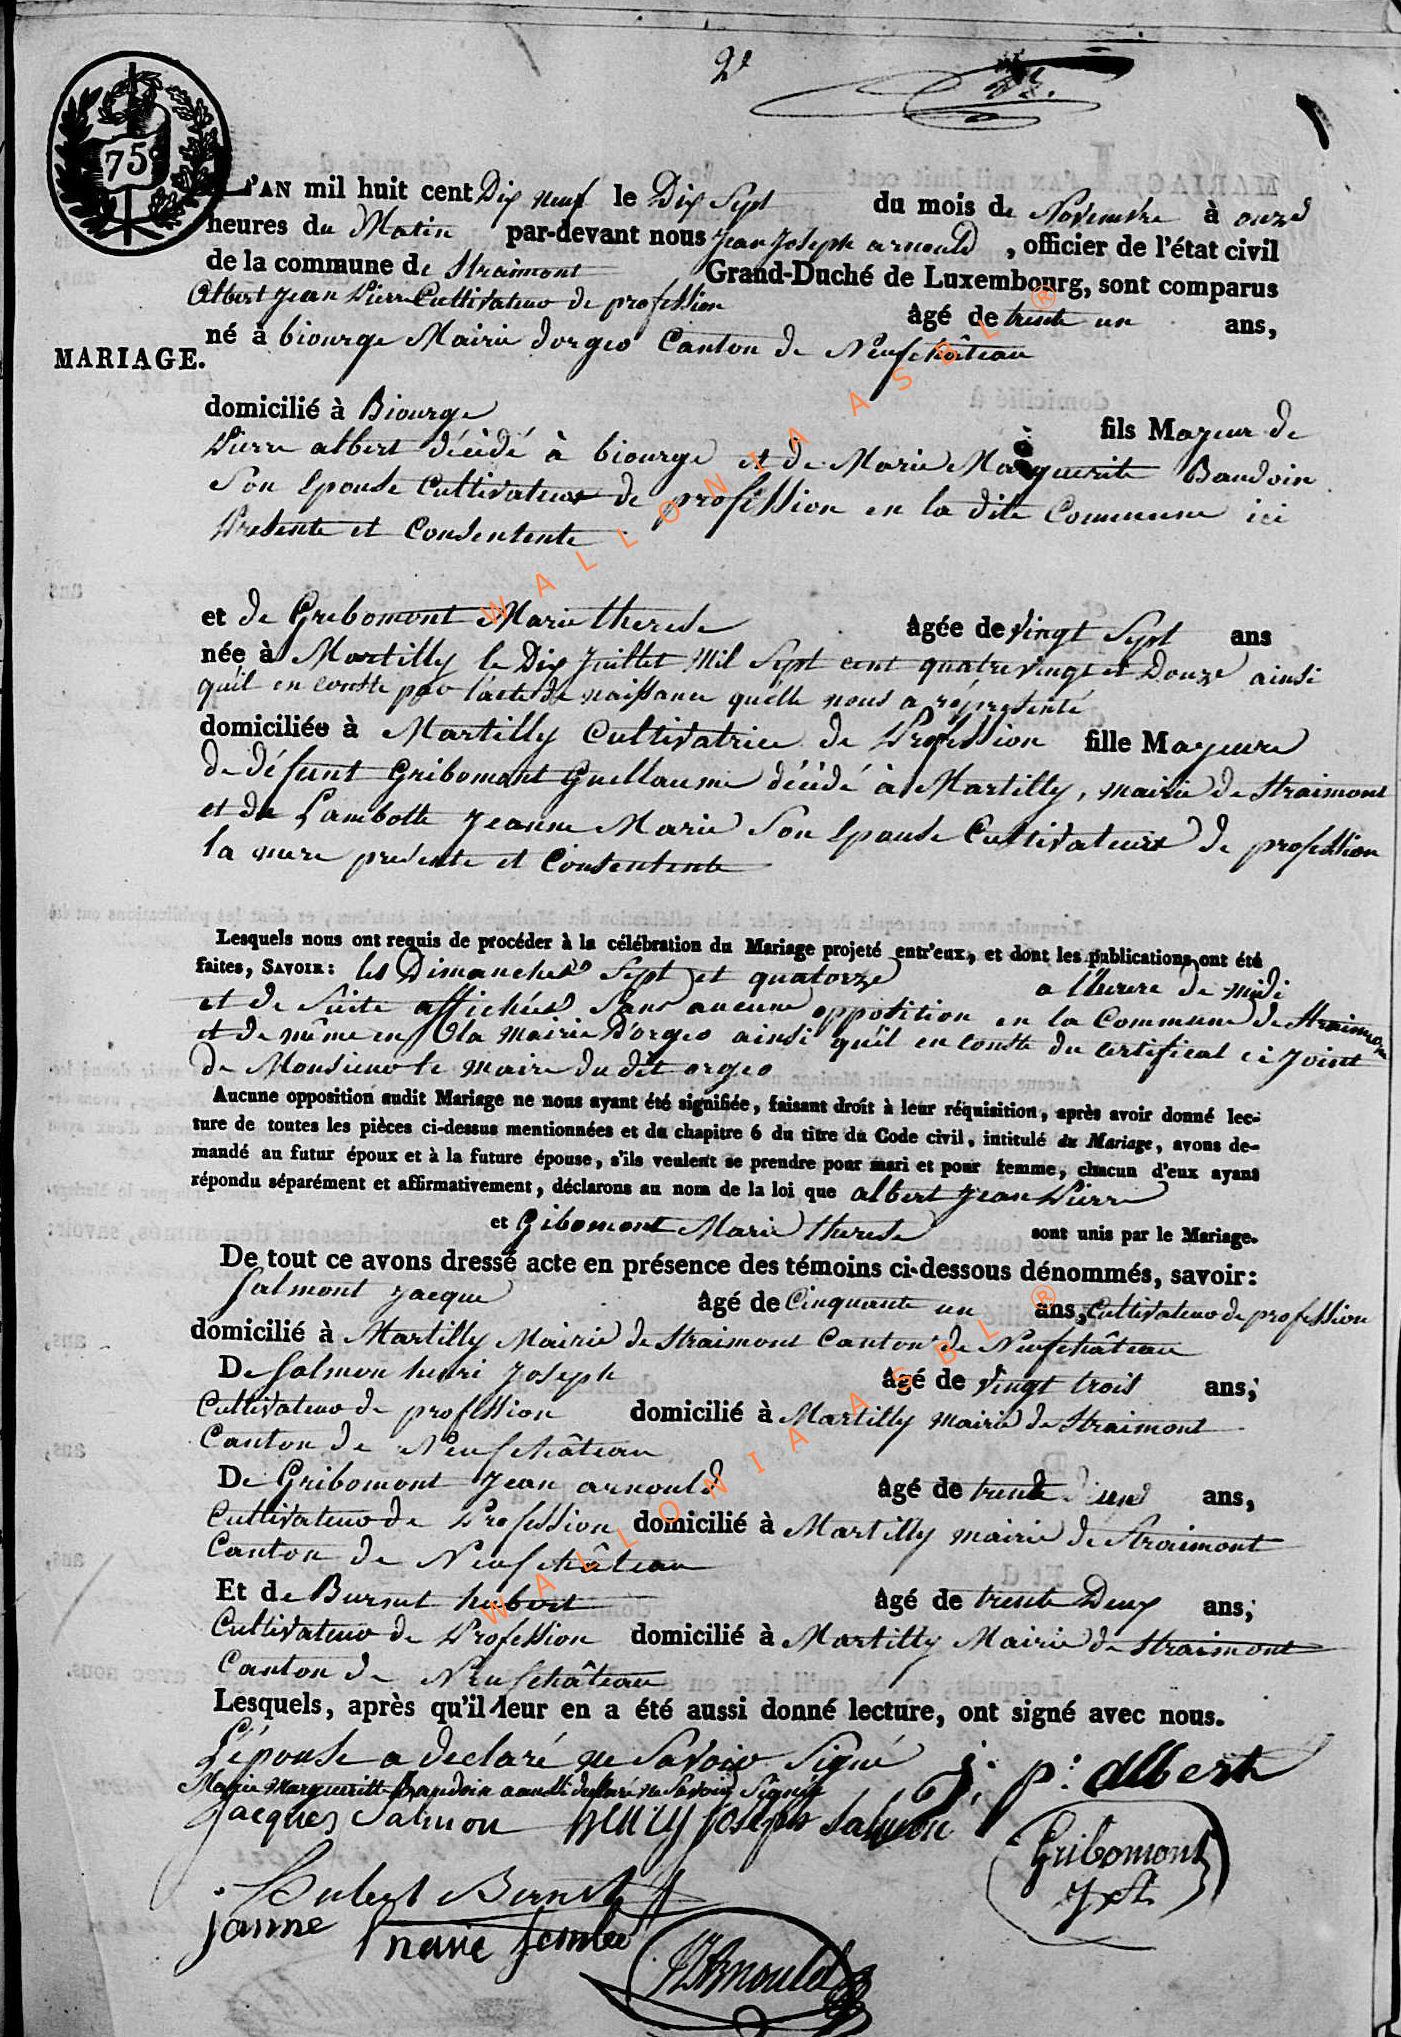 2e
75
L'AN mil huit cent Dix neuf le Dix Sept du mois de Novembre à onze
heures du Matin par-devant nous Jean Joseph arnould, officier de l'état civil
de la commune de Straimont Grand-Duché de Luxembourg, sont comparus
Albert Jean Pierre Cultivateur de profession âgé de trente un ans,
MARIAGE.
né à biourge Mairie dorgeo Canton de Neufchâteau
domicilié à Biourge fils Majeur de
Pierre albert décédé à biourge et de Marie Marguerite Baudoin
Son Epouse Cultivateur de profession en la dite Commune ici
Presente et Consentente
et de Gribomont Marie therese agée de vingt Sept ans
née à Martilly le Dix Juillet Mil Sept cent quatre vingt et Douze ainsi
qu'il en conste par l'acte de naissance qu'elle nous a réprésenté
domiciliée à Martilly Cultivatrice de Profession fille Majeure
de défunt Gribomont Guellaume décédé à Martilly, mairie de Straimont
et de Lambotte Jeanne Marie Son Epouse Cultivateurs de profession
la mere presente et Consentente
Lesquels nous ont requis de procéder à la célébration du Mariage projeté entr'eux, et dont les publications ont été
faites, SAVOIR: les Dimanches Sept et quatorze a l'heure de midi
et de Suite affichés Sans aucune opposition en la Commune de Straimont
et de même en la mairie D'orgeo ainsi qu'il en conste du certificat ci Joint
de Monsieur le maire du dit orgeo
Aucune opposition audit Mariage ne nous ayant été signifiée, faisant droit à leur réquisition, après avoir donné lec-
ture de toutes les pièces ci-dessus mentionnées et du chapitre 6 du titre du Code civil, intitulé du Mariage, avons de-
mandé au futur époux et à la future épouse, s'ils veulent se prendre pour mari et pour femme, chacun d'eux ayant
répondu séparément et affirmativement, déclarons au nom de la loi que albert Jean Pierre
et Gibomont Marie therese sont unis par le Mariage.
De tout ce avons dressé acte en présence des témoins ci-dessous dénommés, savoir:
Salmont Jacque âgé de Cinquante un ans, Cultivateur de profession
domicilié à Martilly Mairie de Straimont Canton de Neufchâteau
De Salmon henri Joseph âgé de vingt trois ans;
Cultivateur de profession domicilié à Martilly mairie de Straimont
Canton de Neufchâteau
De Gribomont Jean arnould âgé de trente un ans,
Cultivateur de Profession domicilié à Martilly mairie de Straimont
Canton de Neufchâteau
Et de Burnet hubert âgé de trente Deux ans;
Cultivateur de Profession domicilié à Martilly Mairie de Straimont
Canton de Neufchâteau
Lesquels, après qu'il leur en a été aussi donné lecture, ont signé avec nous.
L'épouse a declaré ne Savoir Signé
Marie Margueritte Baudoin a aussi declaré ne Savoir Signé
J: p: albert
Jacques Salmon henry joseph Salmon
Gribomont
hubert Burnet
janne marie lembo
JJArnould
WALLONIA ASBL ®
WALLONIA ASBL ®